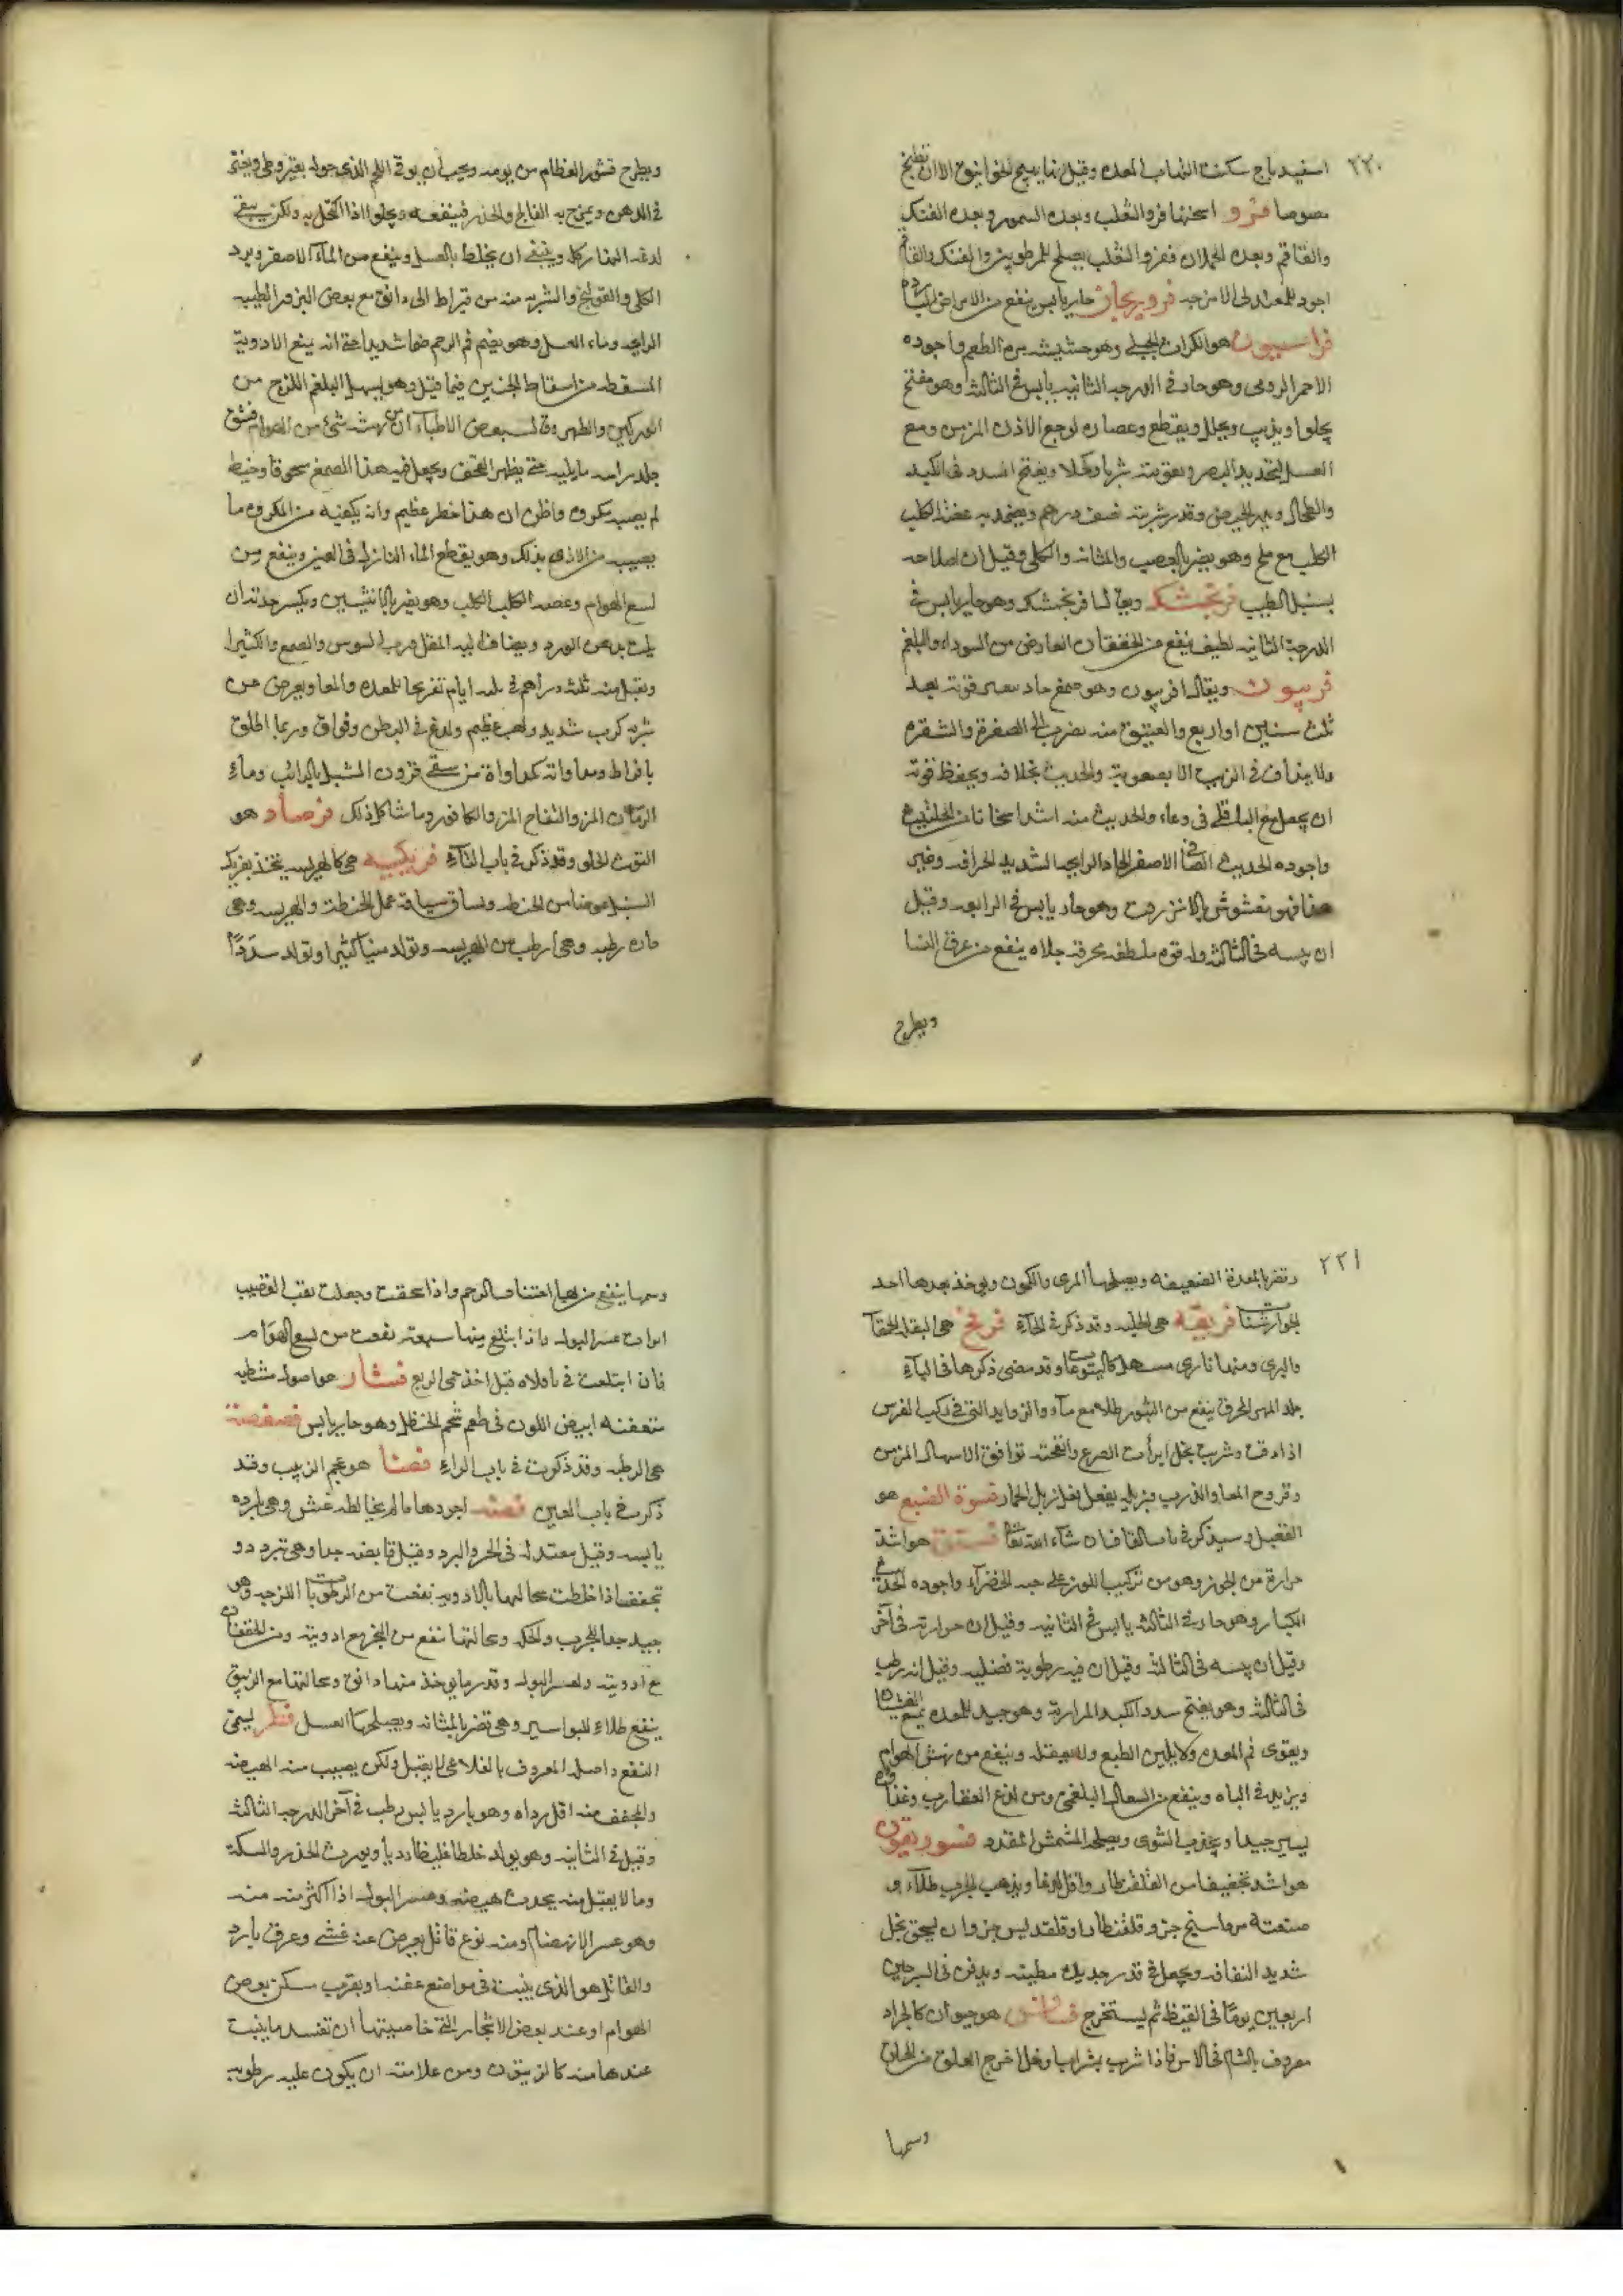 ٢٢٠
اسفيدباج سكنت التهاب المعدة وقيل انها تهيج الخوانيق الا ان تطبخ
مصوصا فرو اسخنها فرو الثعلب وبعده السمور وبعده الفنك
والقاقم وبعده الحملان ففرو الثعلب يصلح للمرطوبين والفنك والقاقم
اجود للمعتدلى الامزجه حار يابس ينفع من الامراض الباردة
فراسيون هو الكراث الجبلى وهو حشيشه مر الطعم واجوده
الاحمر الرومى وهو حار فى الدرجه الثانيه يابس فى الثالثه وهو مفتح
يجلوا ويذيب ويحلل ويقطع وعصاره لوجع الاذن المزمن ومع
العسل لتحديد البصر وتقويته شربا وكحلا ويفتح السدد فى الكبد
والطحال ويدر الحيض وقدر شربته نصف درهم ويضمد به عضة الكلب
الكلب مع ملح وهو يضر بالعصب والمثانه والكلى وقيل ان اصلاحه
بسنبل الطيب فرنجمشك ويقال افرنجمشك وهو حار يابس فى
الدرجة الثانيه لطيف ينفع من الخفقان العارض من السوداء والبلغم
فربيون ويقال افربيون وهو صمغ حاد قوته بعد
ثلث سنين او اربع والعتيق منه يضرب الى الصفرة والشقره
ولا ينداف فى الزيت الا بصعوبة والحديث بخلافه ويحفظ قوته
ان يجعل مع الباقلى فى وعاء والحديث منه اشد اسخانا من الحلتيت
واجوده الحديث الصافى الاصفر الحاد الرايحه الشديد الحرافه وغير
هذا فهو مغشوش بالانزروت وهو حار يابس فى الرابعه وقيل
ان يبسه فى الثالثه وله قوه ملطفه محرقه جلاه ينفع من عرق النسا
ويطرح
ويطرح قشور العظام من يومه ويجب ان يوقى اللحم الذى حوله بقيروطى ويفتق
فى الدهن ويمرخ به الفالج والخدر فينفعه ويجلوا اذا اكتحل به ولكن يبقى
لدغه النهار كله وينبغى ان يخلط بالعسل وينفع من الماء الاصفر وبرد
الكلى والقولنج والشربه منه من قيراط الى دانق مع بعض البزور الطيبه
الرايحه وماء العسل وهو يضم فم الرحم ضما شديدا حتى انه يمنع الادوية
المسقطه من اسقاط الجنين فيما قيل وهو يسهل البلغم اللزج من
الوركين والظهر وقال بعض الاطباء ان من نهشه شئ من الهوام فشق
جلد راسه وما يليه حتى يظهر القحف ويجعل فيه هذا الصمغ مسحوقا وخيط
لم يصبه مكروه واظن ان هذا خطر عظيم وانه يكفيه من المكروه ما
يصيبه من الاذى بذلك وهو يقطع الماء النازل فى العين وينفع من
لسع الهوام وعضه الكلب الكلب وهو يضر بالانثيين ويكسر حدته ان
يلت بدهن الورد ويضاف اليه المقل ورب السوس والصمغ والكثيرا
ويقتل منه ثلثه دراهم فى ثلثه ايام تقريحا للمعده والمعا ويعرض من
شربه كرب شديد ولهب عظيم ولدغ فى البطن وفواق وربما اطلق
بافراط ومداواته كمداواة من سقى قرون السنبل بالرائب وماء
الرمان المز والتفاح المز والكافور وما شاكل ذلك فرصاد هو
التوت الحلو وقد ذكر فى باب التاء فريكيه هى كالهريسه يتخذ بفريك
السنبل عوضا من الحنطه وتساق سياقة عمل الحنطة والهريسه وهى
حاره رطبه وهى ارطب من الهريسه وتولد منيا كثيرا وتولد سددا
٢٢١
وتضر بالمعدة الضعيفه ويصلحها المرى والكمون ويوخذ بعدها احد
الجوارشنات فريقه هى الحلبه وقد ذكر فى الحاء فرفخ هى البقله الحمقا
والبرى ومنها نارى مسهل كاليتوعات وقد مضى ذكرها فى الباء
جلد المهر المحرق ينفع من البثور طلاء مع ماء والزوايد التى فى ركب الفرس
اذا دقت وشربت بخل ابرأت الصرع وانفحته توافق الاسهال المزمن
وقروح المعا والذرب وزبله يفعل فعل زبل الحمار فسوة الضبع هو
الفقيل وسيذكر فى باب القاف ان شاء الله تعالى فستق هو اشد
حرارة من الجوز وهو من تركيب اللوز على حبه الخضراء واجوده الحديث
الكبار وهو حار فى الثالثه يابس فى الثانيه وقيل ان حرارته فى آخر
وقيل ان يبسه فى الثالثه وقيل ان فيه رطوبة فضليه وقيل انه رطب
فى الثالثه وهو يفتح سدد الكبد المرارته وهو جيد للمعده يمنع الغثيان
ويقوى فم المعده ولا يلين الطبع ولا يعقله وينفع من نهش الهوام
ويزيد فى الباه وينفع من السعال البلغمى ومن لدغ العقارب وغذاؤه
يسير جيدا ويختب الشوى ويصلحه المشمش المقدد فسوريقون
هو اشد تجفيفا من القلقطار واقل لذعا ويذهب الجرب طلاء و
صنعته مرداسنج جزء وقلقنطارا وقلقديس جزء وان يسحق بخل
شديد الثقافه ويجعل فى قدر جديده مطينه ويدفن فى السرجين
اربعين يوما فى القيظ ثم يستخرج هو حيوان كالجراد
معروف بالشام فى الاس فاذا شرب بشراب او خل اخرج العلق من الحلق
وسمها
وسمها ينفع من بها اختناق الرحم واذا سحقت وجعلت بقب القضيب
ابرات عسر البول واذا ابتلع منها سبعة نفعت من لسع الهوام
فان ابتلعت فى باقلاه قبل اخذ حمى الربع فشار هو اصول مشظيه
متعفنه ابيض اللون فى طعم شحم الحنظل وهو حار يابس فصفصة
هى الرطبه وقد ذكرت فى باب الراء فصا هو عجم الزبيب وقد
ذكرت فى باب العين فضه اجودها ما لم يخالطه غش وهى بارده
يابسه وقيل معتدله فى الحر والبرد وقيل قابضه جدا وهى تبرد و
تجفف اذا خلطت سحالتها بالادويه نفعت من الرطوبات اللزجه وهى
جيد جدا للجرب والحكه وسحالتها تنفع من البخر مع ادويته ومن الخفقان
مع ادويته ولعسر البول وقدر ما يوخذ منها دانق وسحالتها مع الزيبق
ينفع طلاء للبواسير وهى تضر بالمثانه ويصلحها العسل فطر يسمى
الفقع واصله المعروف بالفلاعى لا يقتل ولكن يصيب منه الهيضه
والمجفف منه اقل رداه وهو بارد يابس رطب فى آخر الدرجه الثالثه
وقيل فى الثانيه وهو يولد خلطا غليظا رديا ويورث الخدر والسكتة
وما لا يقتل منه يحدث هيضه وعسر البول اذا اكثر منه
وهو عسر الانهضام ومنه نوع قاتل يعرض عنه غشى وعرق بارد
والقاتل هو الذى ينبت فى مواضع عفنه او بقرب مسكن بعض
الهوام او عند بعض الاشجار التى خاصيتها ان تفسد ما ينبت
عندها منه كالزيتون ومن علامته ان يكون عليه رطوبه